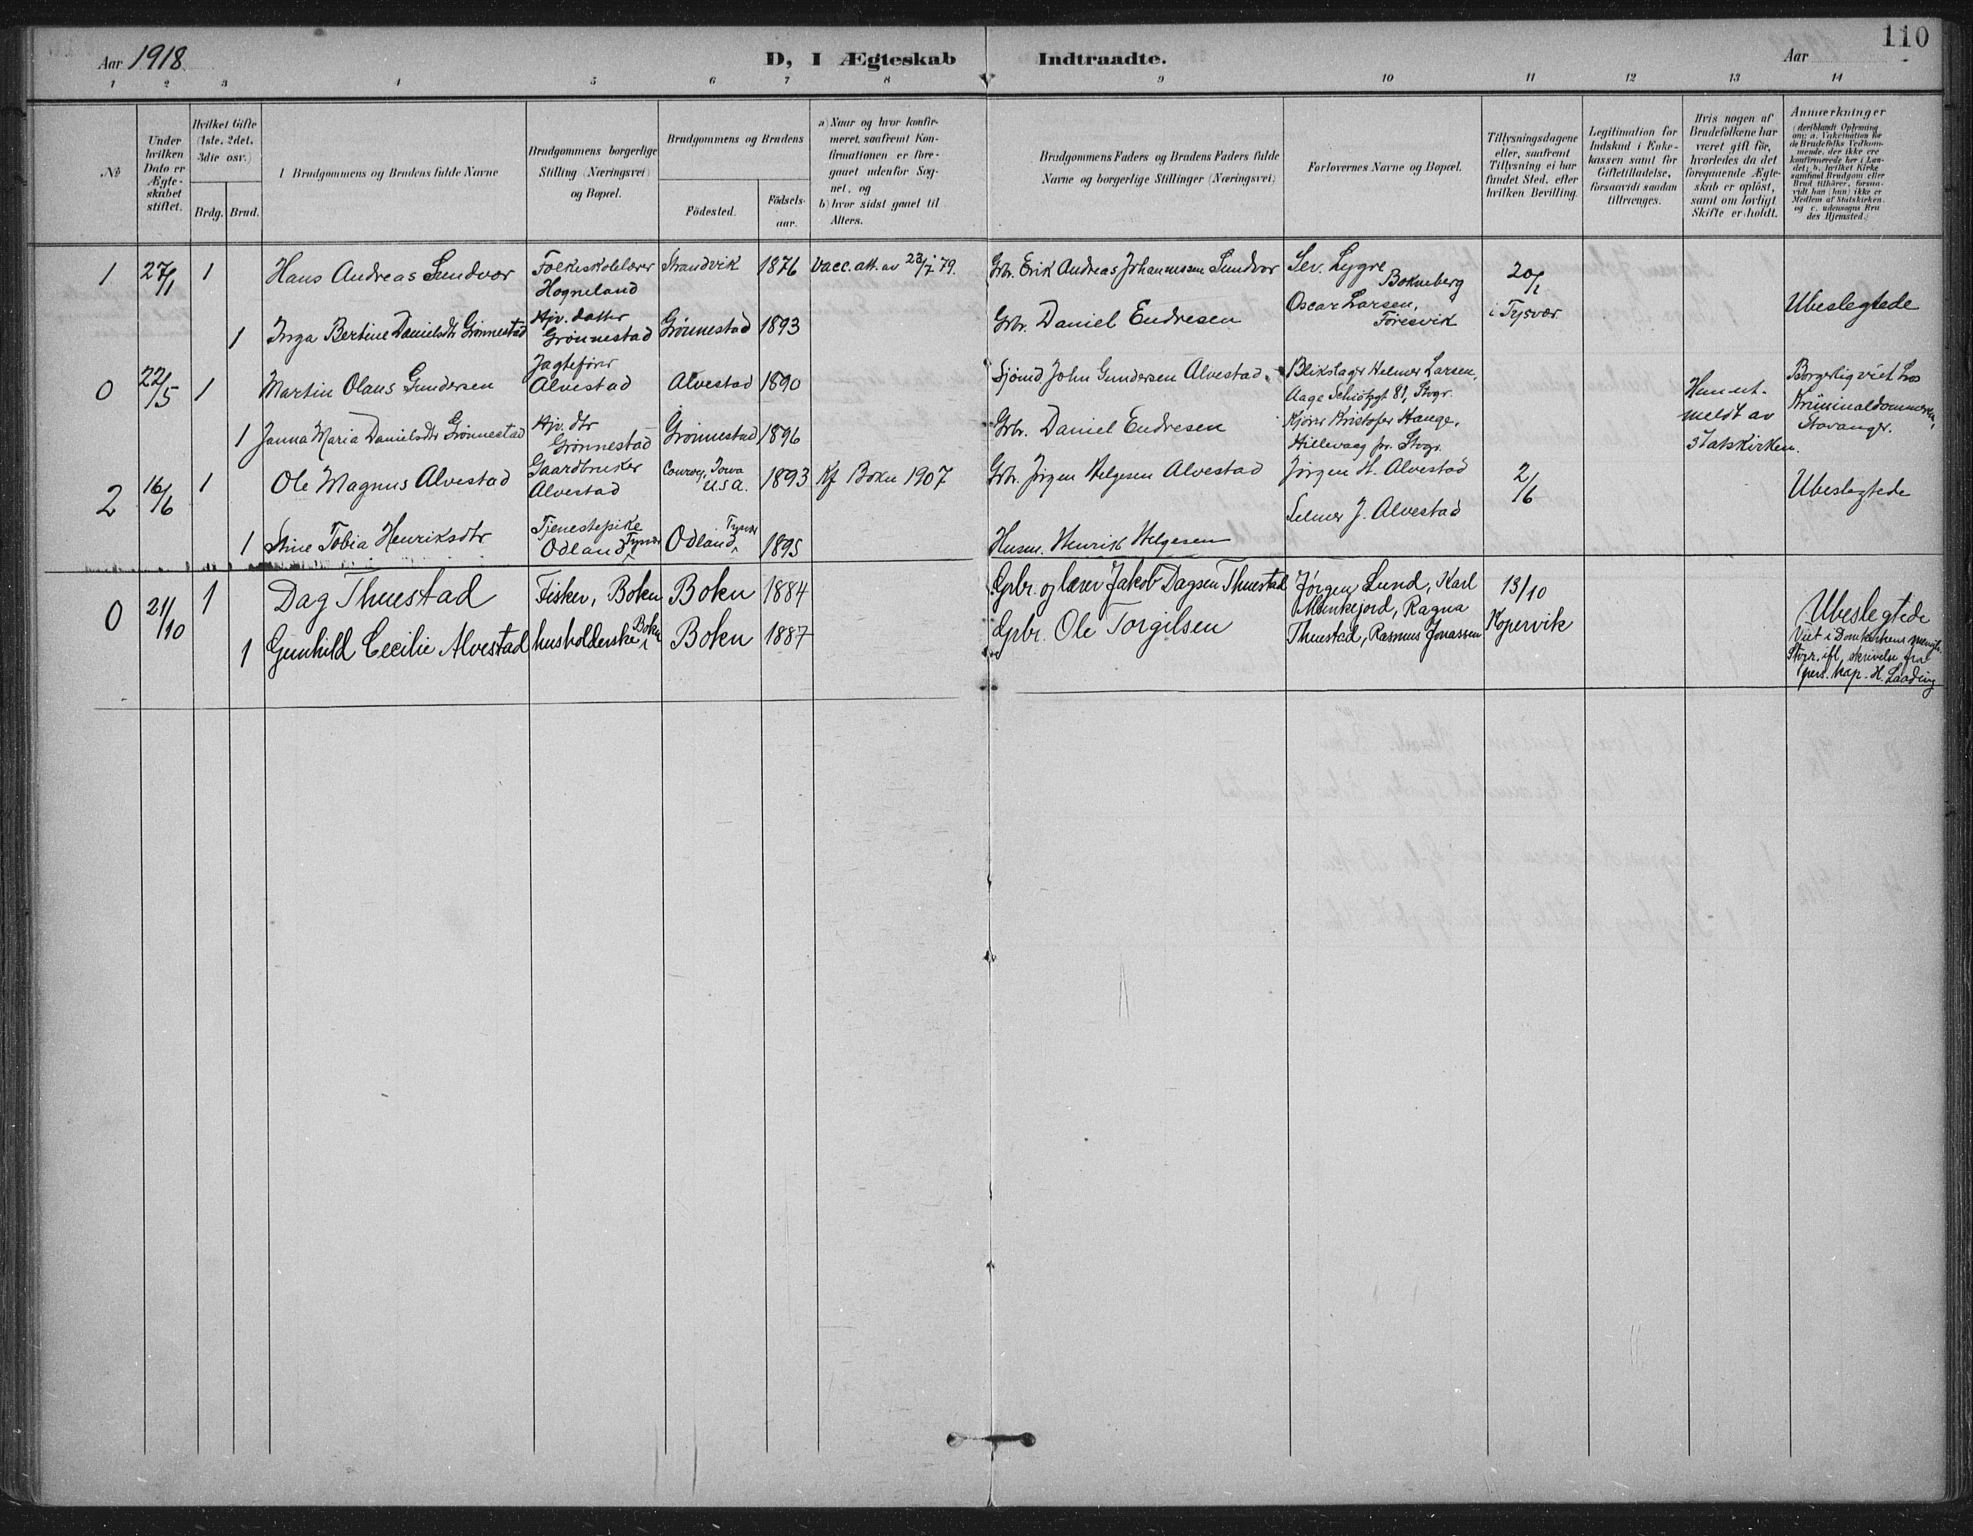 110
Aar 1918.
D, I Ægteskab Indtraadte.
Aar
1 2 3 4 5 6 7 8 9 10 11 12 13 14
No
Under hvilken Dato er Ægteskabet stiftet.
Hvilket Gifte (1ste, 2det, 3die osv.)
Brdg. Brud.
Brudgommens og Brudens fulde Navne
Brudgommens borgerlige Stilling (Næringsvei) og Bopæl.
Brudgommens og Brudens
Fødested.
Fødselsaar.
a) Naar og hvor konfirmeret, saafremt Konfirmationen er foregaaet udenfor Sognet, og
b) hvor sidst gaaet til Alters.
Brudgommens Faders og Brudens Faders fulde Navne og borgerlige Stillinger (Næringsvei)
Forlovernes Navne og Bopæl.
Tillysningsdagene eller, saafremt Tillysning ei har fundet Sted, efter hvilken Bevilling.
Legitimation for Indskud i Enkekassen samt for Giftetilladelse, forsaavidt saadan tiltrænges.
Hvis nogen af Brudefolkene har været gift før, hvorledes da det foregaaende Ægteskab er opløst, samt om lovligt Skifte er holdt.
Anmærkninger
(deriblandt Oplysning om: a. Vakcination for de Brudefolks Vedkommende, der ikke ere konfirmerede her i Landet; b. hvilket Kirkesamfund Brudgom eller Brud tilhører, forsaavidt han (hun) ikke er Medlem af Statskirken, og c. udensogns Brudes Hjemsted.)
1 27/1 1 Hans Andreas Sundvor Folkeskolelærer Hogneland Strandvik 1876 Vacc. att. av 23/7 79. Grbr. Erik Andreas Johannessen Sundvor Sev. Lygre Bokneberg 20/1
1 Inga Bertine Danielsdtr Grønnestad Hjv. datter Grønnestad Grønnestad 1893 Grbr. Daniel Endresen Oscar Larsen, Føresvik i Tysvær Ubeslegtede
0 22/5 1 Martin Olaus Gundersen Jagtefører Alvestad Alvestad 1890 Sjømd John Gundersen Alvestad. Blikslager Helmer Larsen, Aage Schiøtzgt 81, Stvgr. Hun utmeldt av Statskirken. Borgerlig viet hos Kriminaldommeren, Stavanger.
1 Janna Maria Danielsdtr Grønnestad Hjv. dtr Grønnestad Grønnestad 1896 Grbr. Daniel Endresen Kjører Kristofer Hauge, Hillevaag pr. Stvgr.
2 16/6 1 Ole Magnus Alvestad Gaardbruker Alvestad Conroy, Iowa U.S.A. 1893 Kf Bokn 1907 Grbr. Jørgen Helgesen Alvestad Jørgen H. Alvestad 2/6 Ubeslegtede
1 Stine Tobia Henriksdtr Tjenestepike Odland Tysvær Odland Tysvær 1895 Husm. Henrik Helgesen Selmer J. Alvestad
0 21/10 1 Dag Thuestad Fisker, Bokn Bokn 1884 Grbr. og lærer Jakob Dagsen Thuestad Jørgen Lund, Karl Munkejord, Ragna 13/10
1 Gunhild Cecilie Alvestad husholderske, Bokn Bokn 1887 Grbr. Ole Torgilsen Thuestad, Rasmus Jonassen Kopervik Ubeslegtede
Viet i Domkirkens menigh. Stvgr. ifl. skrivelse fra pers. kap. H. Laading